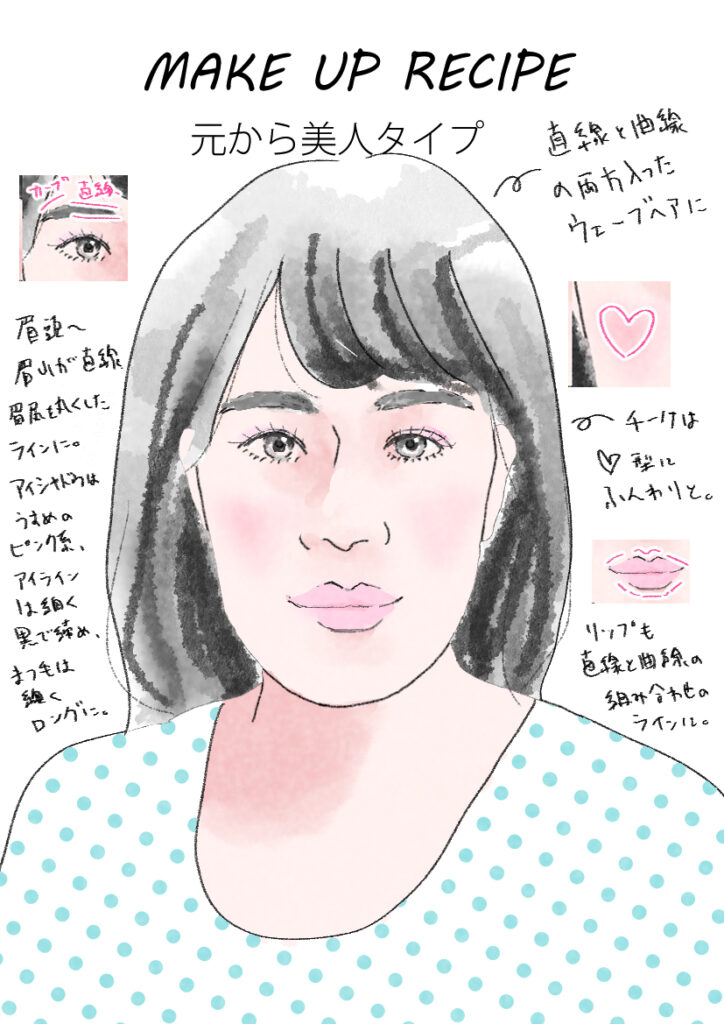 MAKE UP RECIPE
元から美人タイプ
直線と曲線
の両方入った
ウェーブヘアに
カーブ 直線
眉頭〜
眉山が直線
眉尻を丸くした
ラインに。
アイシャドウは
うすめの
ピンク系、
アイライン
は細く
黒で締め、
まつ毛は
細く
ロングに。
チークは
♡型に
ふんわりと。
リップも
直線と曲線の
組み合わせの
ラインに。